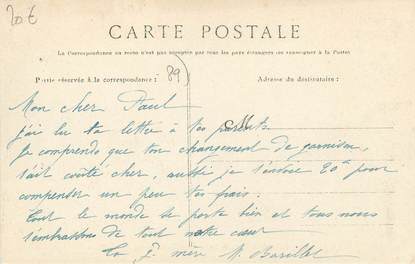 20 €
CARTE POSTALE
La Correspondance au recto n'est pas acceptée par tous les pays étrangers se renseigner à la Poste
Partie réservée à la correspondance :
89
Adresse du destinataire :
Mon cher Paul
j'ai lu ta lettre à tes parents
je comprends que ton changement de garnison,
t'ait coûté cher, aussi je t'envoie 20 f pour
compenser un peu tes frais.
Tout le monde se porte bien et tous nous
t'embrassons de tout notre cœur
Ta mère